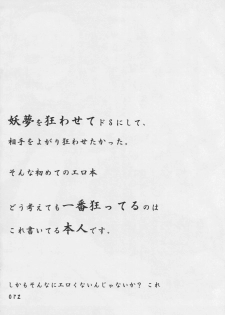 妖夢を狂わせてドSにして、
相手をよがり狂わせたかった。
そんな初めてのエロ本
どう考えても一番狂ってるのは
これ書いてる本人です。
しかもそんなにエロくないんじゃないか？ これ
orz